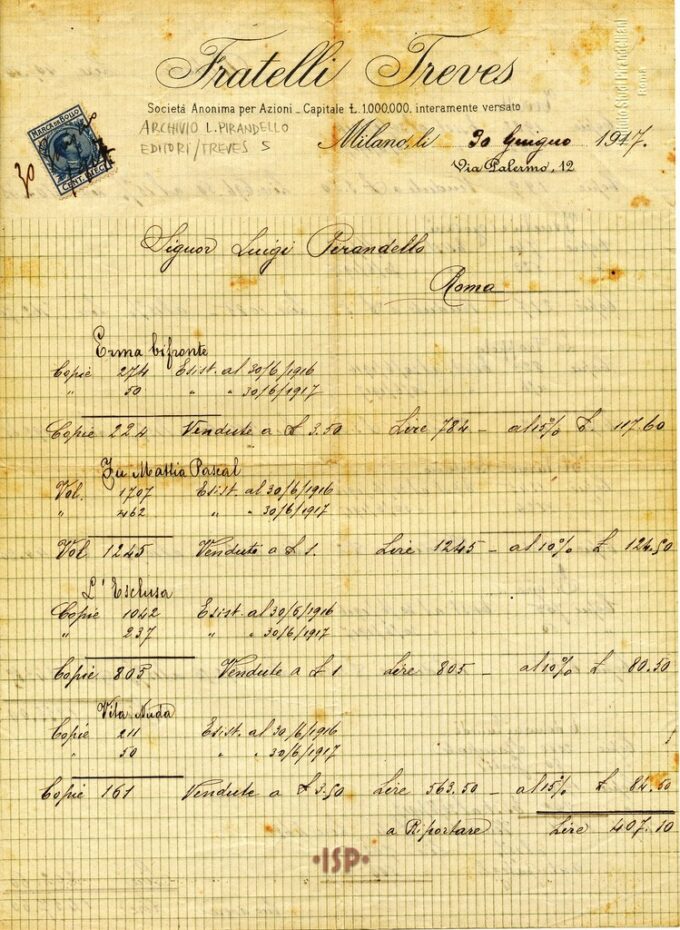 Fratelli Treves
Società Anonima per Azioni - Capitale £. 1.000.000. interamente versato
MARCA DA BOLLO
CENT. DIECI
30
ARCHIVIO L. PIRANDELLO
EDITORI/TREVES 5
Milano, li 30 Giugno 1917.
Via Palermo, 12
Studi Pirandelliani
Roma
Signor Luigi Pirandello
Roma
Erma bifronte
Copie 274 Esist. al 30/6/1916
" 50 " " 30/6/1917
Copie 224 Vendute a £ 3.50 Lire 784 - al 15% £. 117.60
Fu Mattia Pascal
Vol. 1707 Esist. al 30/6/1916
" 462 " " 30/6/1917
Vol. 1245 Vendute a £ 1. Lire 1245 - al 10% £ 124.50
L'Esclusa
Copie 1042 Esist. al 30/6/1916
" 237 " " 30/6/1917
Copie 805 Vendute a £ 1 Lire 805 - al 10% £ 80.50
Vita Nuda
Copie 211 Esist. al 30/6/1916
" 50 " " 30/6/1917
Copie 161 Vendute a £ 3.50 Lire 563.50 - al 15% £ 84.50
a Riportare Lire 407.10
·ISP·